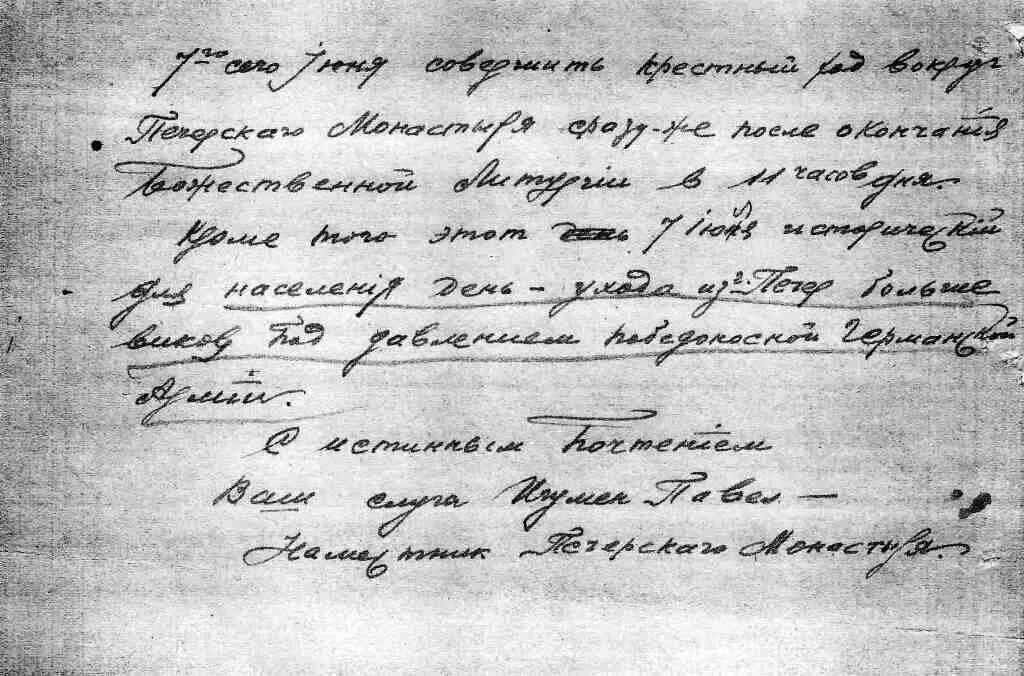 7го сего Iюня совершить крестный ход вокруг
Печерскаго Монастыря сразу-же после окончанiя
Божественной Литургiи в 11 часов дня.
Кроме того этот день 7 Iюня историческiй
для населенiя день – ухода из г. Печер больше
виков под давлением победоносной Германской
Армiи.
С истинным почтенiем
Ваш слуга Игумен Павел –
Наместник Печерскаго Монастыря.